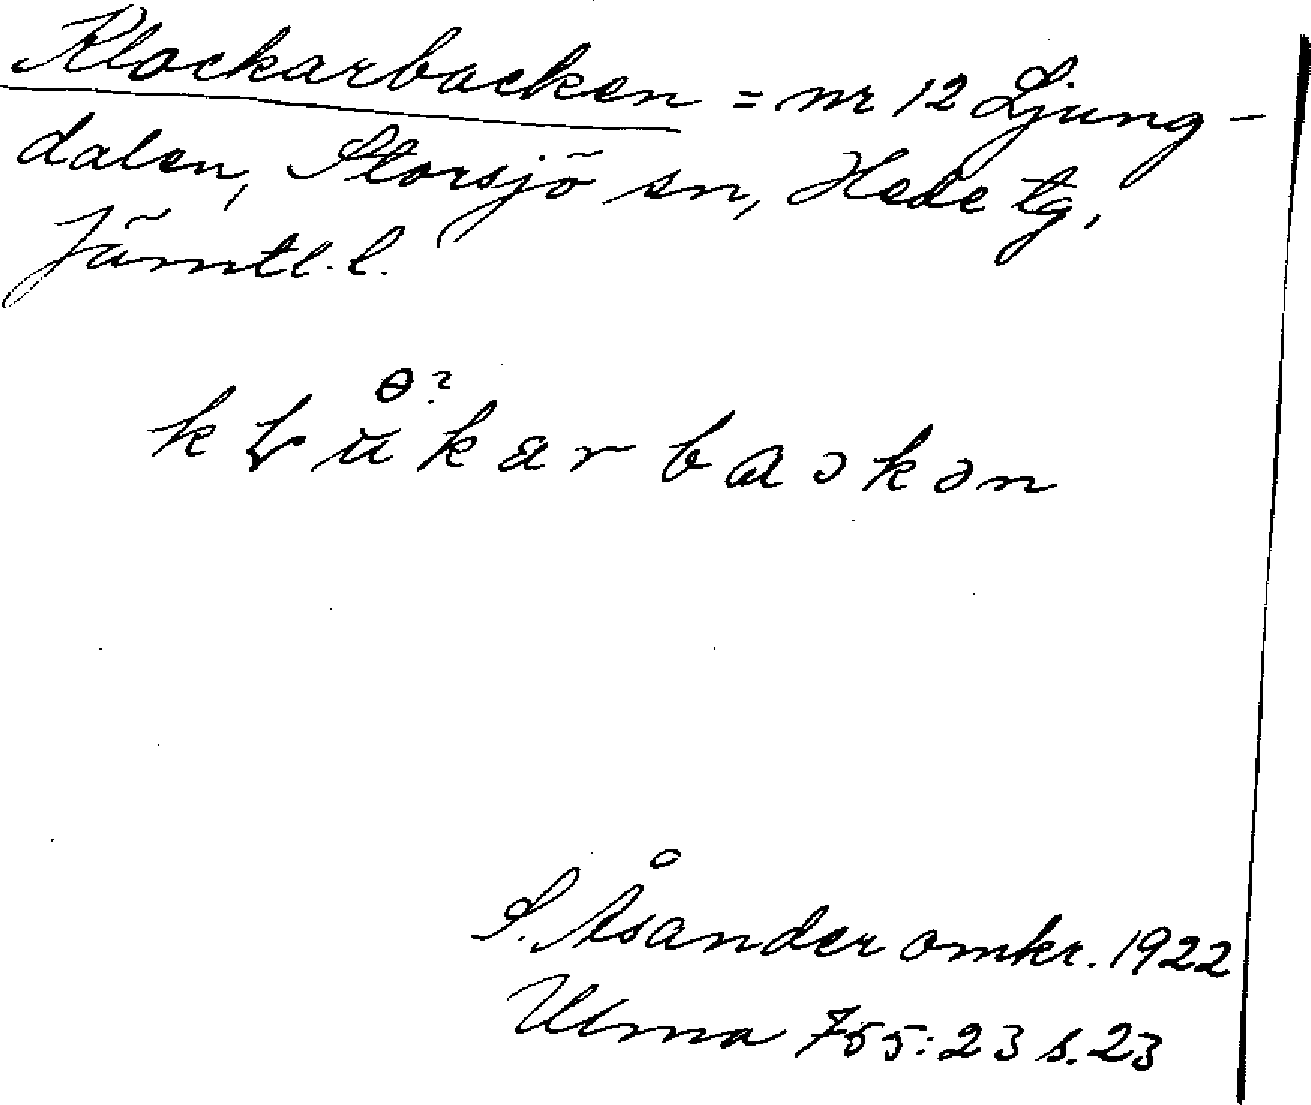 Klockarbacken = nr 12 Ljung-
dalen, Storsjö sn, Hede tg,
Jämtl. l.
ɵ?
kɽükarbaɔkən
S. Åsander omkr. 1922
Ulma 755:23 s. 23